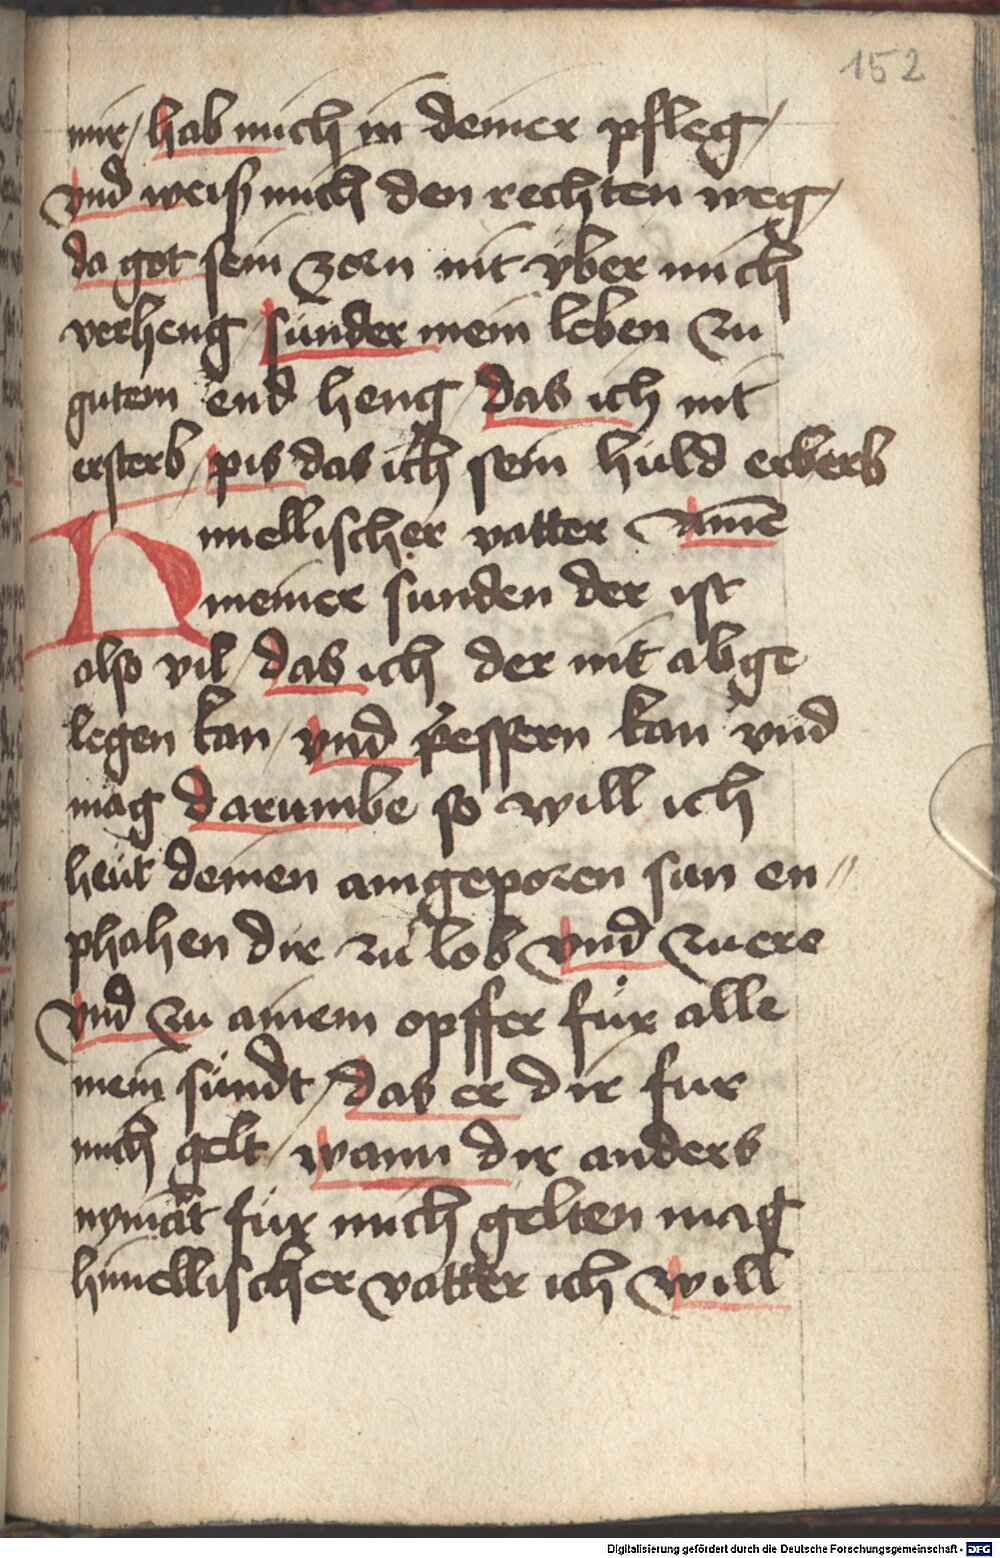 152
mir / hab mich in deiner pfleg /
vnd weiß mich den rechten weg /
da got sein zorn nit yber mich
verheng / sunder mein leben zu
gutem end heng / das ich nit
ersterb / pis das ich sein huld erberb
H imellischer vatter Amē
meiner sunden der ist
also vil / das ich der nit abge
legen kan / vnd pessern kan vnd
mag darumbe so will ich
heut deinen aingeporen sun en〃
phahen dir zu lob vnd zu ere
vnd zu ainem opffer für alle
mein sündt / das er dir fur
mich gelt / wann dir anders
nymāt für mich gelten mag
himellischer vatter ich will
Digitalisierung gefördert durch die Deutsche Forschungsgemeinschaft - DFG